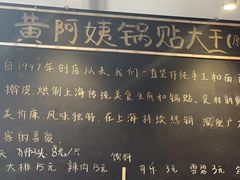 黄阿姨锅贴大王
自1997年创店以来,我们一直坚持纯手工和面
擀皮,烘制上海传统美食生煎和锅贴,食材新鲜
美价廉,风味独特,在上海持续热销,深受广
客的喜爱。
8元/只 饮料
大排15元 辣肉15元 可乐3元 雪碧3元